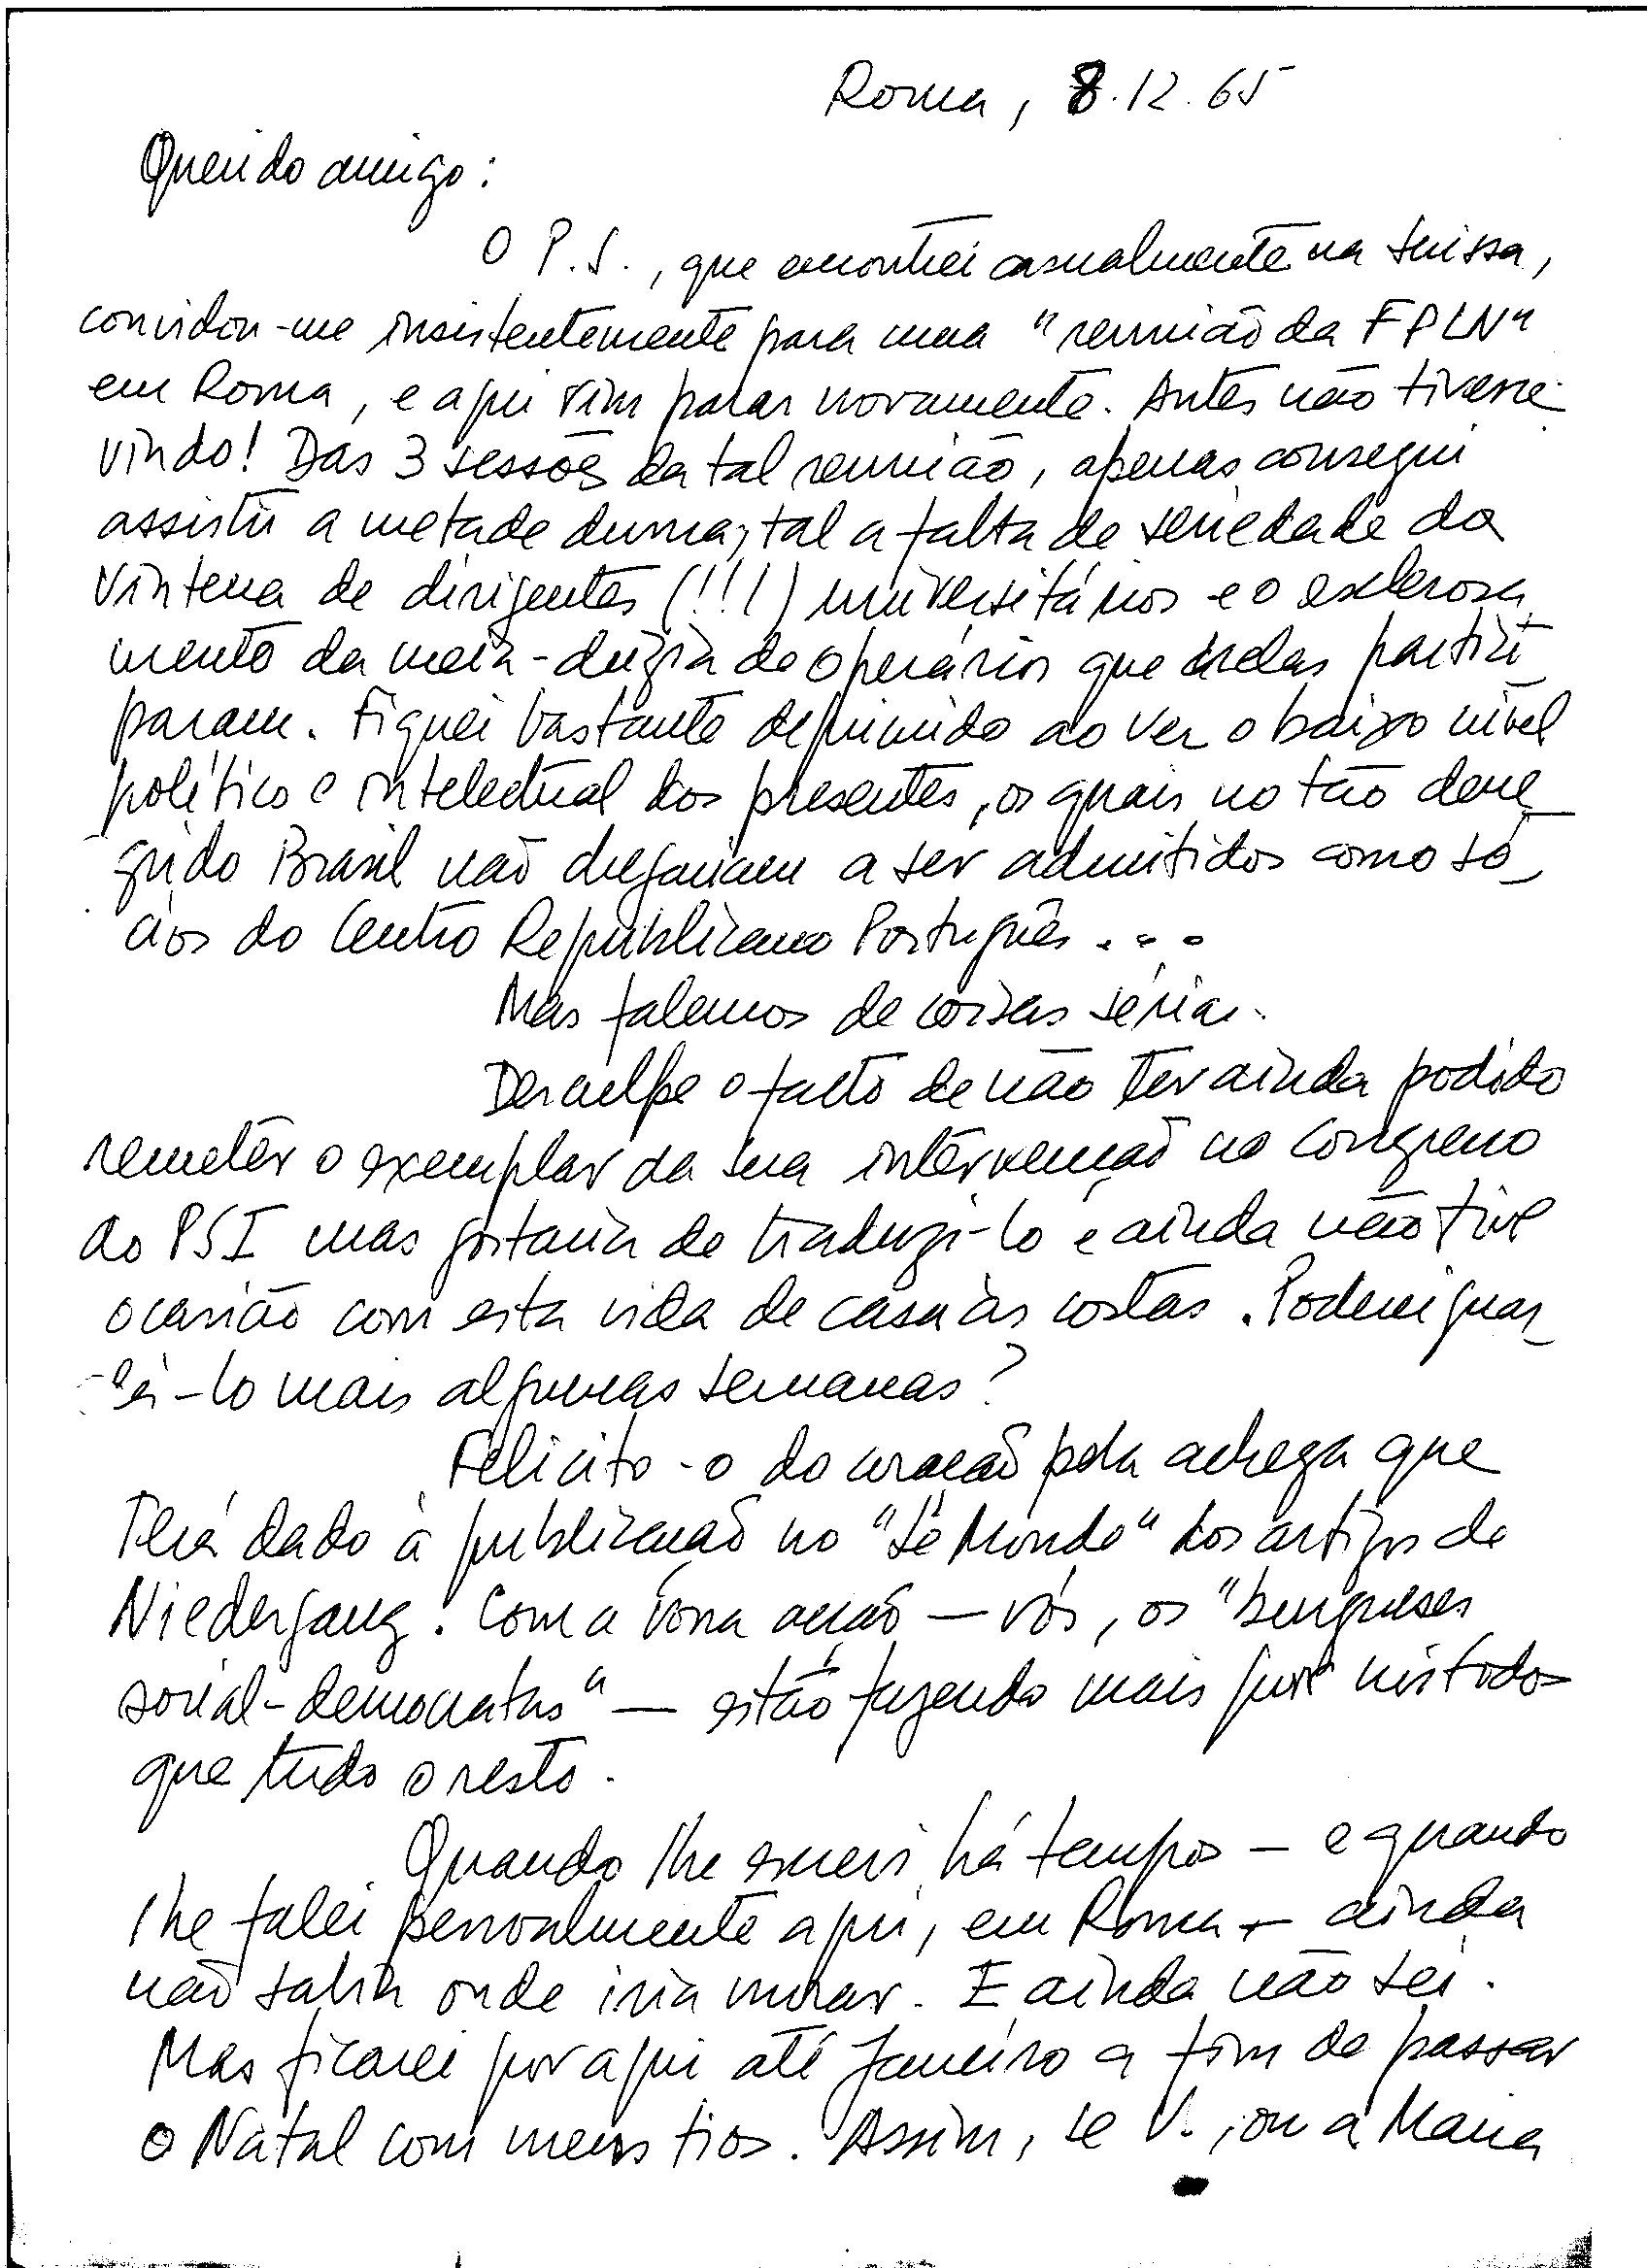 Roma, 8.12.65
Querido amigo:
O P.S., que encontrei casualmente na Suissa,
convidou-me insistentemente para uma "reunião da FPLN"
em Roma, e aqui vim parar novamente. Antes não tivesse
vindo! Das 3 sessões da tal reunião, apenas consegui
assistir a metade duma, tal a falta de seriedade da
vintena de dirigentes (!!!) universitários e o esclerosa
mento da meia-dúzia de operários que delas partici
param. Fiquei bastante deprimido ao ver o baixo nível
político e intelectual dos presentes, os quais no tão dene
grido Brasil não chegariam a ser admitidos como só
cios do Centro Republicano Português...
Mas falemos de coisas sérias.
Desculpe o facto de não ter ainda podido
remeter o exemplar da sua intervenção no Congresso
do PSI mas gostaria de traduzi-lo e ainda não tive
ocasião com esta vida de casa às costas. Poderei guar
dá-lo mais algumas semanas?
Felicito-o do coração pela achega que
terá dado à publicação no "Le Monde" dos artigos de
Niedergang. Com a vossa acção — vós, os "burgueses
social-democratas" — estão fazendo mais que
que tudo o resto.
Quando lhe escrevi há tempos — e quando
lhe falei pessoalmente aqui, em Roma — ainda
não sabia onde iria morar. E ainda não sei.
Mas ficarei por aqui até Janeiro a fim de passar
o Natal com meus tios. Assim, se V., ou a Maria